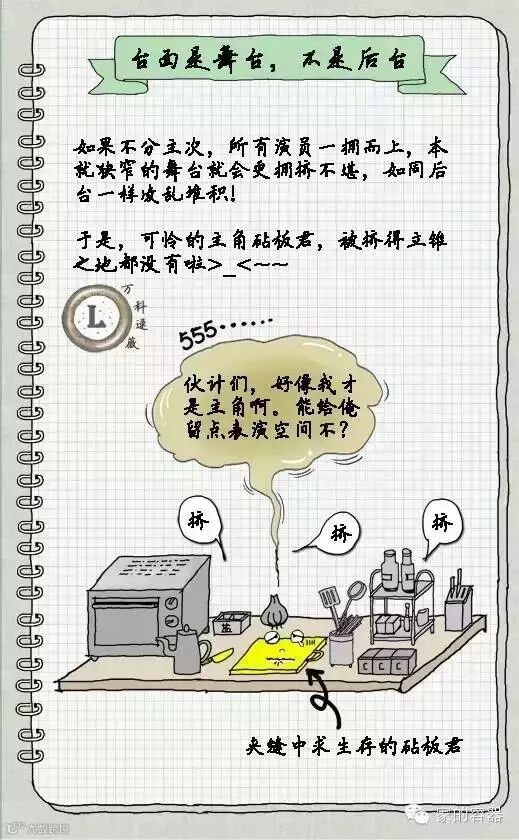 台面是舞台，不是后台
如果不分主次，所有演员一拥而上，本
就狭窄的舞台就会更拥挤不堪，如同后
台一样凌乱堆积！
于是，可怜的主角砧板君，被挤得立锥
之地都没有啦>_<~~
万科逯薇
L
555……
伙计们，好像我才
是主角啊。能给俺
留点表演空间不？
挤
挤
挤
盐
夹缝中求生存的砧板君
家的容器